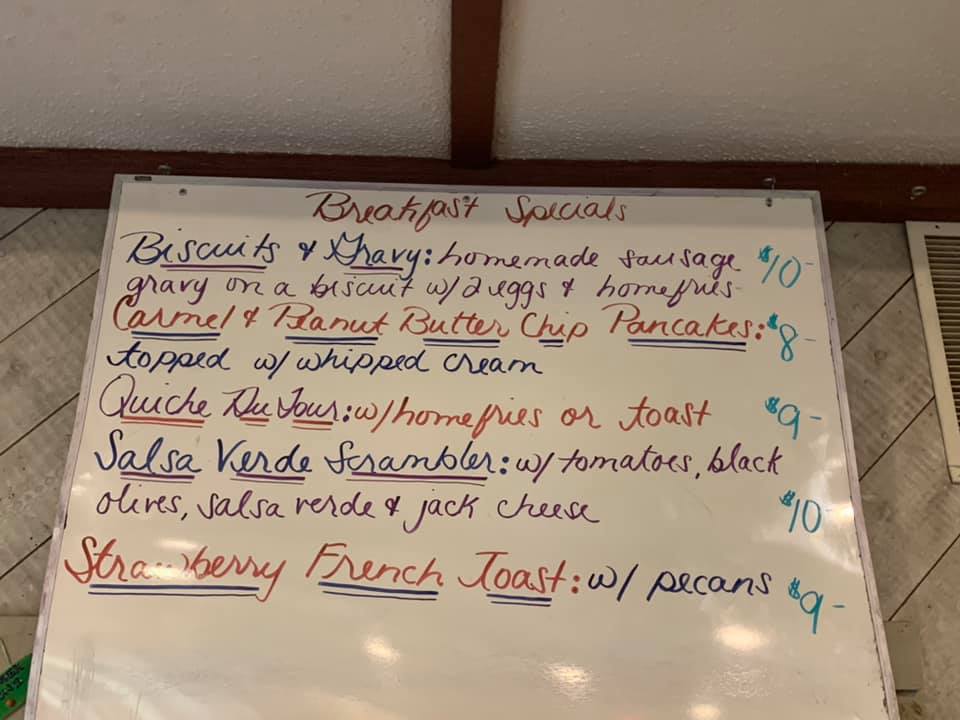 Breakfast Specials
Biscuits & Gravy: homemade sausage $10-
gravy on a biscuit w/ 2 eggs & homefries
Carmel & Peanut Butter Chip Pancakes: $8-
topped w/ whipped cream
Quiche Du Jour: w/ homefries or toast $9-
Salsa Verde Scrambler: w/ tomatoes, black
olives, salsa verde & jack cheese $10
Strawberry French Toast: w/ pecans $9-